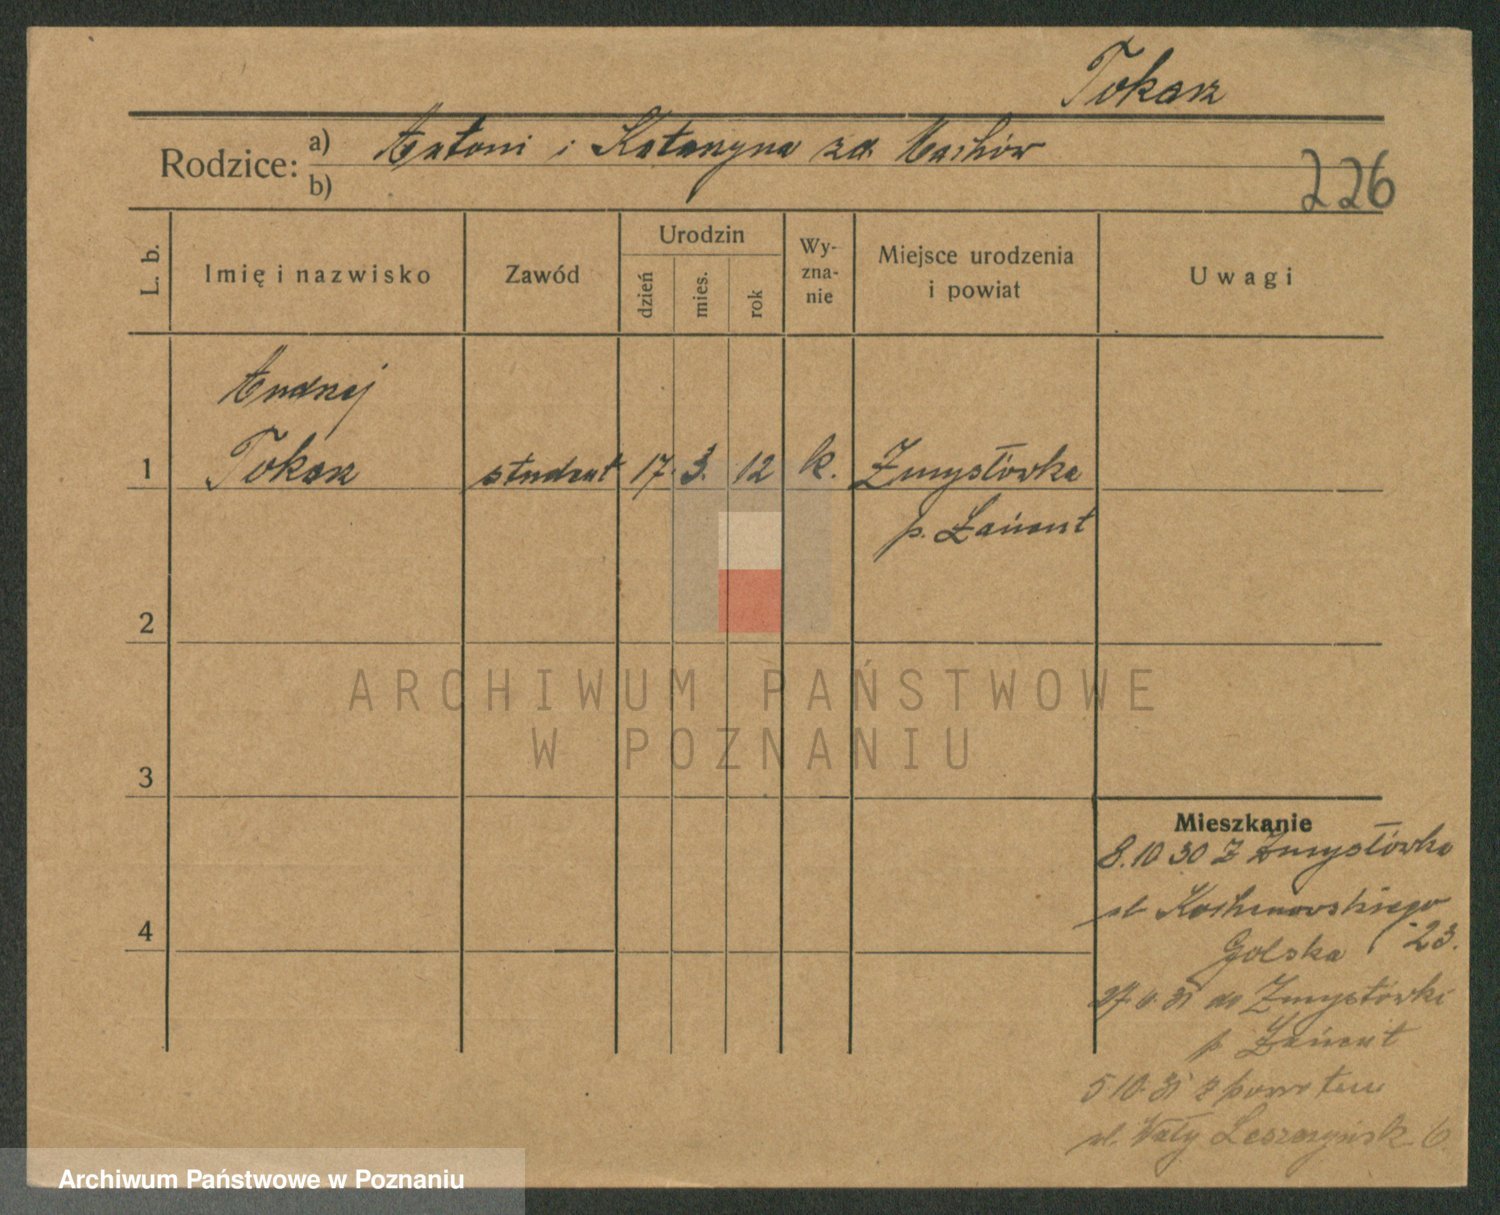 Tokarz
Rodzice:
a) Antoni i Katarzyna zd. Machów
b)
226
L. b.
Imię i nazwisko
Zawód
Urodzin
dzień
mies.
rok
Wy-
zna-
nie
Miejsce urodzenia
i powiat
Uwagi
Andrzej
1 Tokarz student 17. 3. 12 k. Zmysłówka
p. Łańcut
2
3
4
ARCHIWUM PAŃSTWOWE
W POZNANIU
Mieszkanie
8.10 30 z Zmysłówka
ul. Kochanowskiego
Golska 23.
27 6. 31 do Zmysłówki
p. Łańcut
5 10. 31 z powrotem
ul. Wały Leszczyńsk. 6.
Archiwum Państwowe w Poznaniu